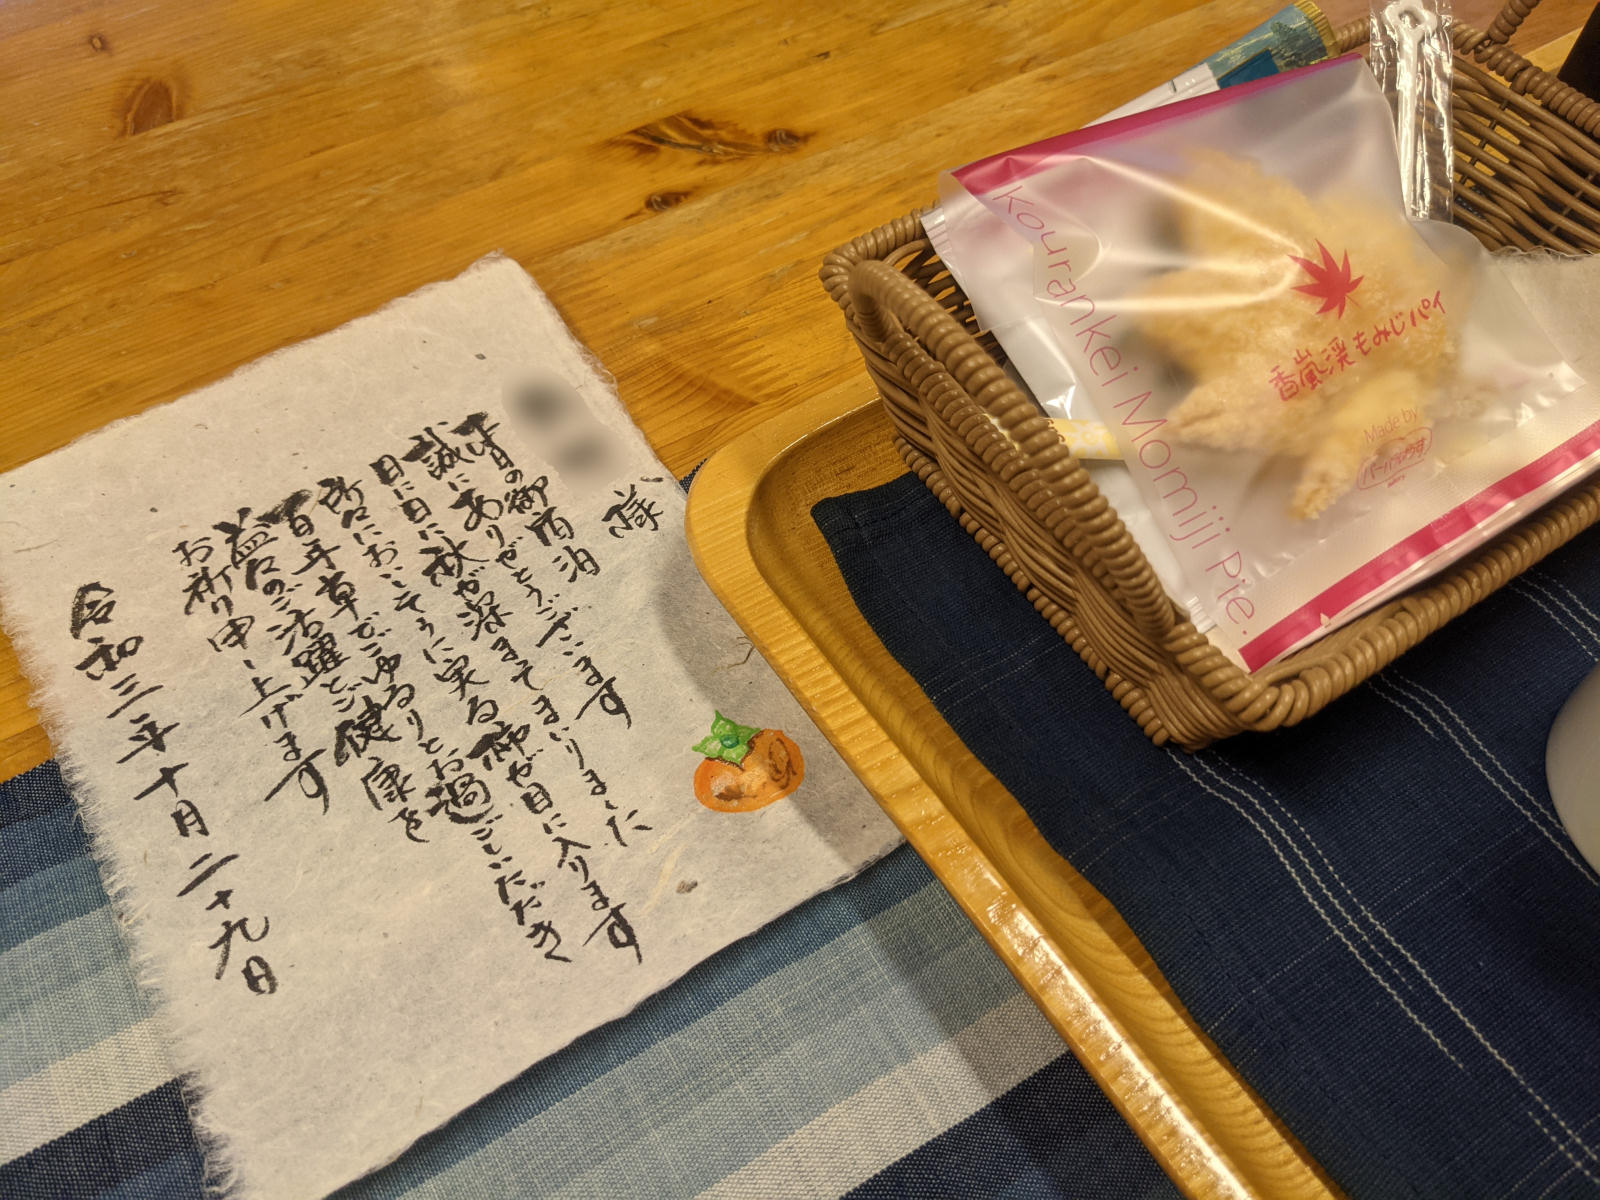 様
本日の御宿泊
誠にありがとうございます
日に日に秋が深まってまいりました
所々においてうに実る柿が目に入ります
百年草でごゆるりとお過ごしいただき
益々のご活躍とご健康を
お祈り申し上げます
令和三年十月二十九日
Kourankei Momiji Pie.
香嵐渓もみじパイ
Made by
バーバラはうす